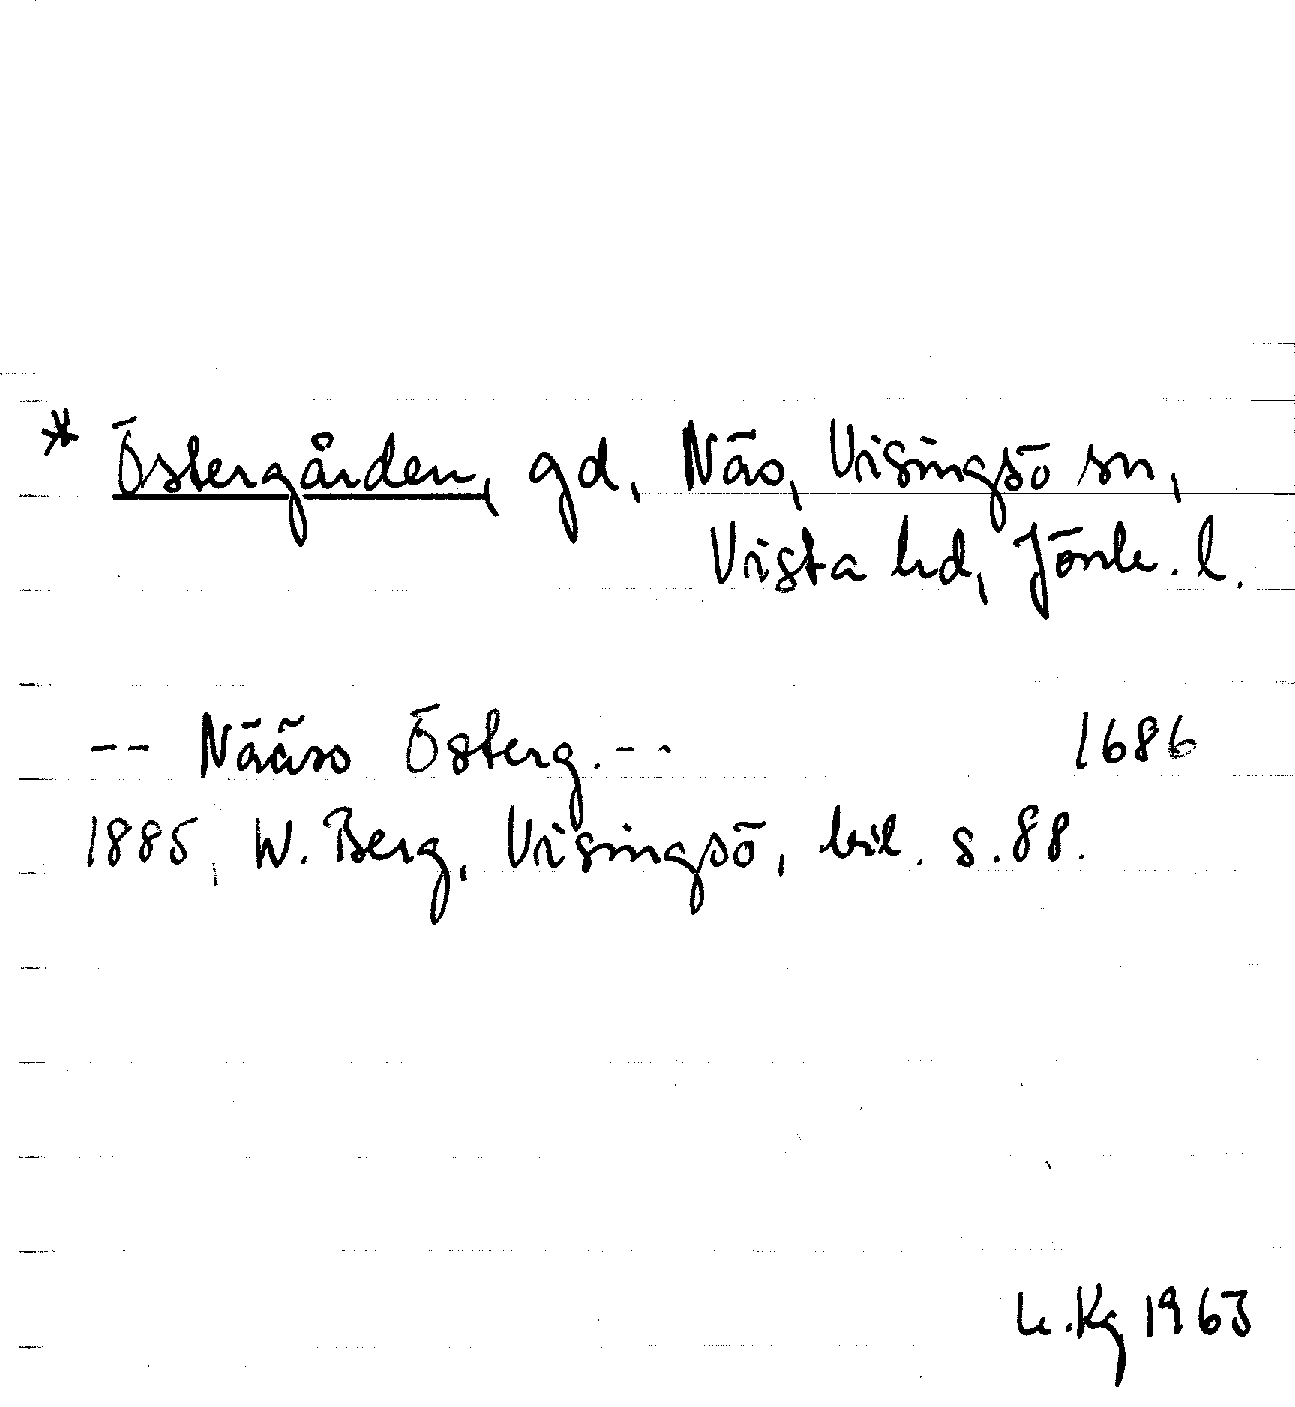 * Östergården, gd, Näs, Visingsö sn,
Vista hd, Jönk. l.
-- Nääs Österg. -- 1686
1885, W. Berg, Visingsö, bil. s. 88.
Kg 1963